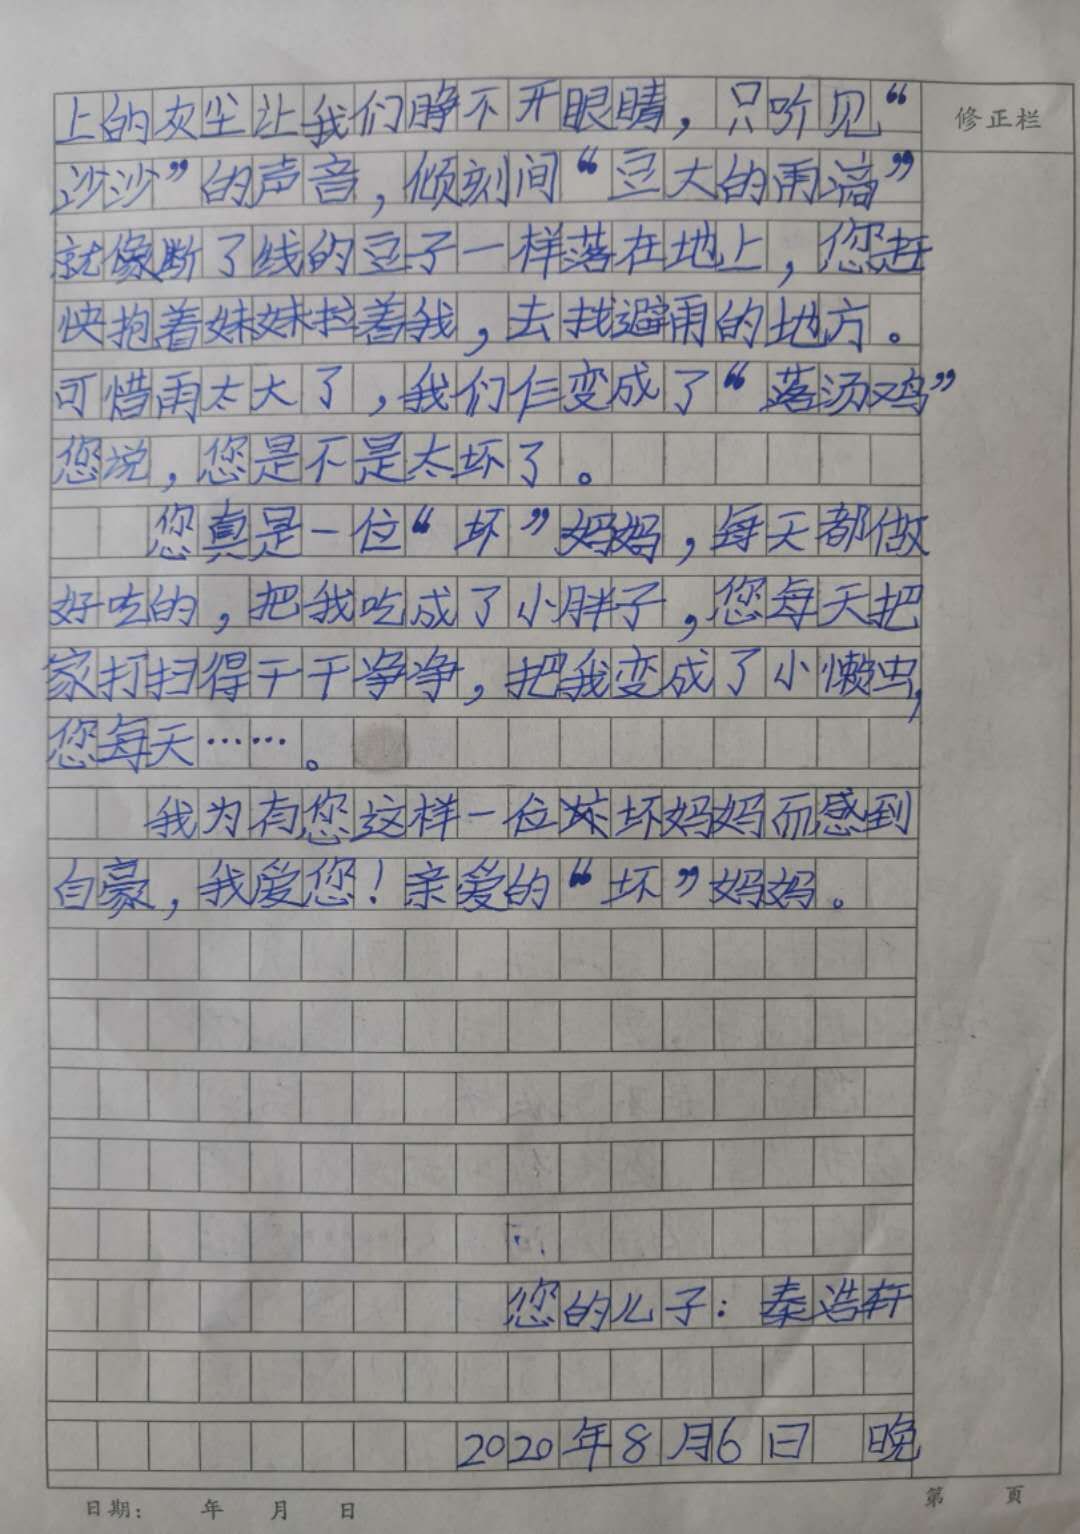 上的灰尘让我们睁不开眼睛，只听见“
沙沙”的声音，倾刻间“豆大的雨滴”
就像断了线的豆子一样落在地上，您赶
快抱着妹妹拉着我，去找避雨的地方。
可惜雨太大了，我们仨变成了“落汤鸡”
您说，您是不是太坏了。
您真是一位“坏”妈妈，每天都做
好吃的，把我吃成了小胖子，您每天把
家打扫得干干净净，把我变成了小懒虫，
您每天……。
我为有您这样一位坏妈妈而感到
自豪，我爱您！亲爱的“坏”妈妈。
您的儿子：秦浩轩
2020年8月6日 晚
修正栏
日期： 年 月 日
第 页